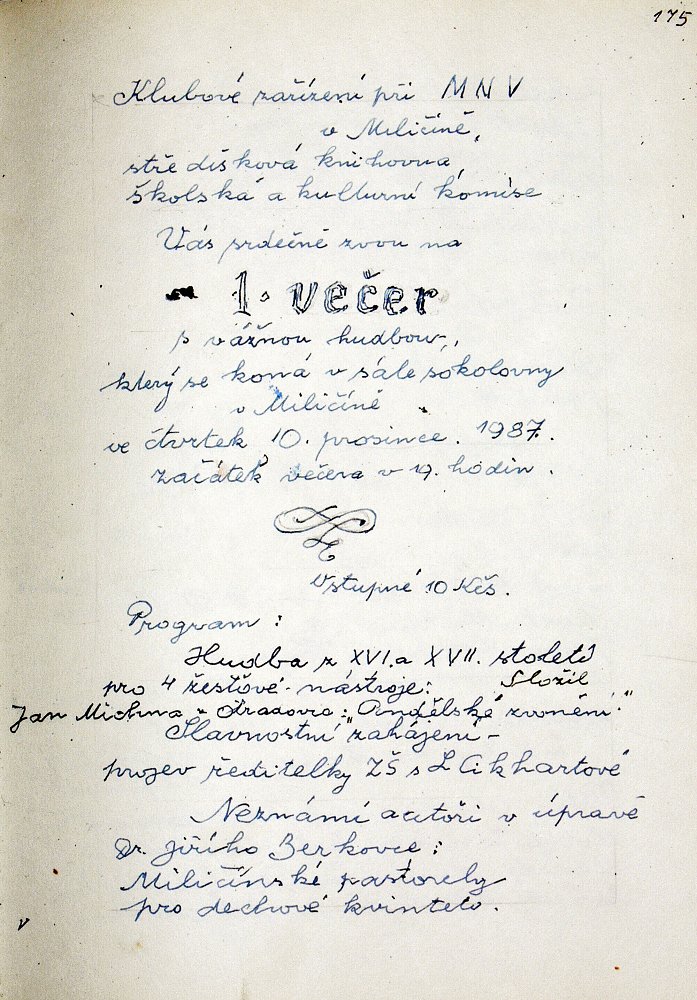 175
Klubové zařízení při MNV
v Miličíně,
středisková knihovna,
školská a kulturní komise
Vás srdečně zvou na
1. večer
s vážnou hudbou,
který se koná v sále sokolovny
v Miličíně
ve čtvrtek 10. prosince 1987.
začátek večera v 19. hodin.
Vstupné 10 Kčs.
Program:
Hudba z XVI. a XVII. století
pro 4 žesťové nástroje: Složil
Jan Michna z Otradovic: "Andělské zvonění"
Slavnostní zahájení -
projev ředitelky ZŠ s L Cikhartové
Neznámí autoři v úpravě
Dr. Jiřího Berkovce:
Miličínské pastorely
pro dechové kvinteto.